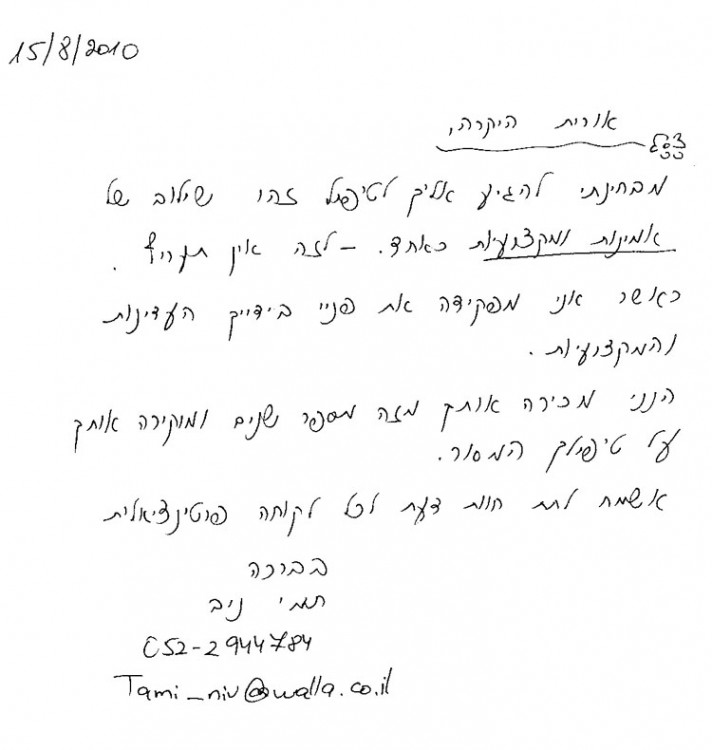 15/8/2010
אורית היקרה,
מבחינתי להגיע אליך לטיפול זהו שילוב של
אמינות ומקצועיות כאחד. - לזה אין תעריף.
כאשר אני מפקידה את פניי בידייך העדינות
והמקצועיות.
הנני מכירה אותך מזה מספר שנים ומוקירה אותך
על טיפולך המסור.
אשמח לתת חוות דעת לכל לקוחה פוטינציאלית
בברכה
תמי ניב
052-2944784
Tami_niv@walla.co.il